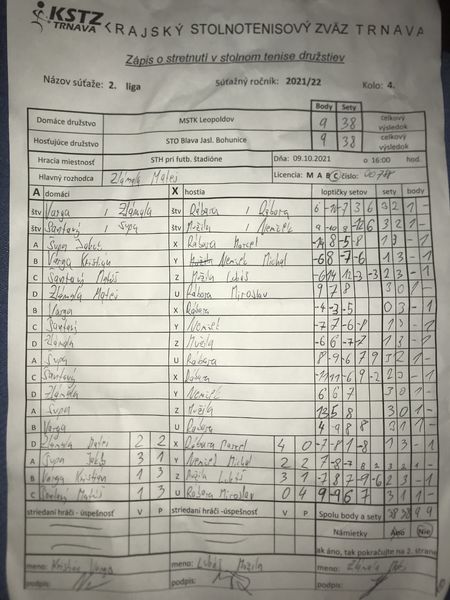 KSTZ
TRNAVA
KRAJSKÝ STOLNOTENISOVÝ ZVÄZ TRNAVA
Zápis o stretnutí v stolnom tenise družstiev
Názov súťaže: 2. liga Súťažný ročník: 2021/22 Kolo: 4.
Body Sety
Domáce družstvo MSTK Leopoldov 9 38 celkový výsledok
Hosťujúce družstvo STO Blava Jasl. Bohunice 9 38 celkový výsledok
Hracia miestnosť STH pri futb. štadióne Dňa: 09.10.2021 o 16:00 hod.
Hlavný rozhodca Zlámala Matej Licencia: M A B C číslo:
A domáci X hostia loptičky setov sety body
štv Varga / Zlámala štv Rábara / Rábara 6 -10 -7 3 6 3 2 1 -
štv Šantavý / Šupa štv Mužila / Nemček 3 2 1 -
A Šupa Jakub X Rábara Marcel -14 8 -5 -8 1 3 - 1
B Varga Kristian Y Nemček Michal -6 8 -7 -6 1 3 - 1
C Šantavý Matúš Z Mužila Lukáš 2 3 - 1
D Zlámala Matej U Rábara Miroslav 9 7 8 3 0 1 -
B Varga X Rábara -4 -3 -5 0 3 - 1
C Šantavý Y Nemček -7 7 -6 -8 1 3 - 1
D Zlámala Z Mužila -6 6 -7 -7 1 3 - 1
A Šupa U Rábara 8 -9 -6 7 9 3 2 1 -
C Šantavý X Rábara 2 3 - 1
D Zlámala Y Nemček 6 6 7 3 0 1 -
A Šupa Z Mužila 12 5 8 3 0 1 -
B Varga U Rábara 4 -9 8 8 3 1 1 -
D Zlámala Matej 2 2 X Rábara Marcel 4 0 -7 -8 1 -8 1 3 - 1
A Šupa Jakub 3 1 Y Nemček Michal 2 2
B Varga Kristian 1 3 Z Mužila Lukáš 3 1 -7 8 -7 -9 -6 2 3 - 1
C Šantavý Matúš 1 3 U Rábara Miroslav 0 4 9 -9 6 7 3 1 1 -
striedaní hráči - úspešnosť V P striedaní hráči -úspešnosť V P Spolu body a sety 38 38 9 9
Námietky Áno Nie
ak áno, tak pokračujte na 2. strane
meno: Kristian Varga meno: Lukáš Mužila meno: Zlámala
podpis: podpis: podpis: